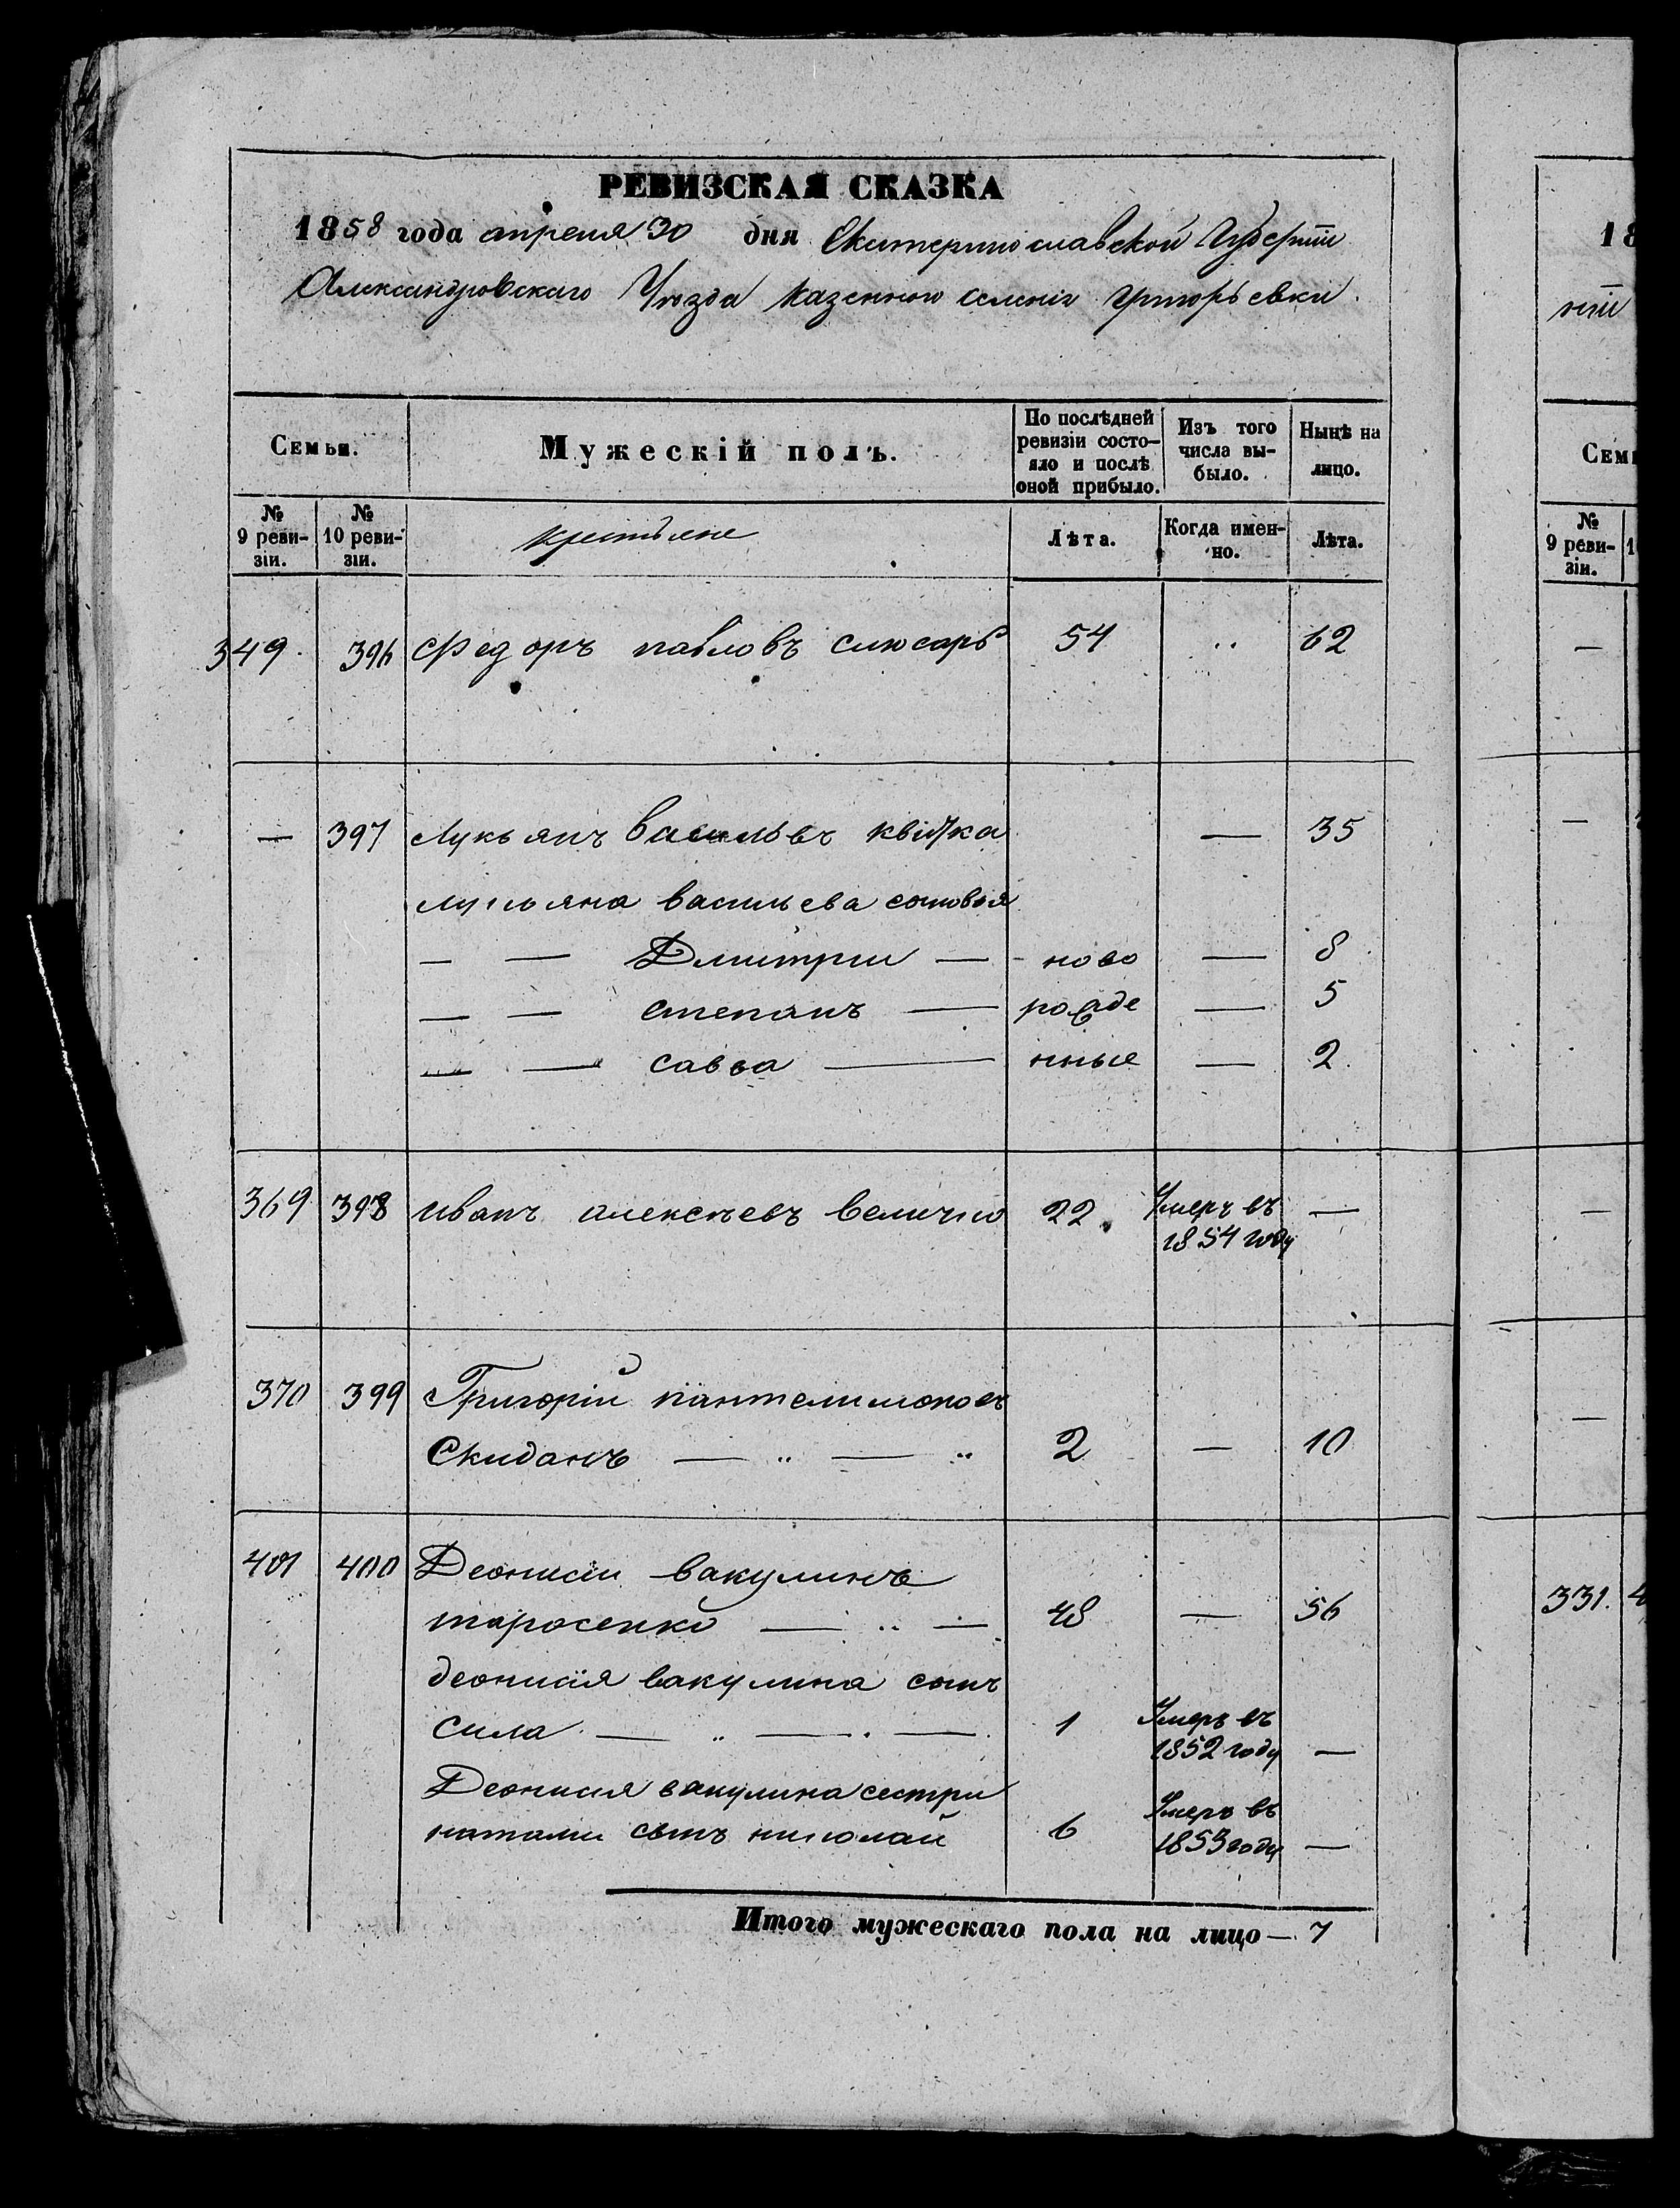 РЕВИЗСКАЯ СКАЗКА
1858 года апреля 30 дня Екатеринославской Губерніи
Александровскаго Уѣзда казенного селенія Григорьевки
Семьи. Мужескій полъ. По послѣдней ревизіи состо-яло и послѣ оной прибыло. Изъ того числа вы-было. Нынѣ на лицо.
№ 9 реви-зіи. № 10 реви-зіи. крестьяне Лѣта. Когда имен-но. Лѣта.
349. 396 Федоръ павловъ слюсарь 54 „ 62
— 397 Лукьянъ Васильевъ квѣтка — 35
лукьяна васильева сыновья
— — Дмитрий — - ново — 8
— — степанъ — рожде — 5
— — савва — нные — 2.
369 398 иванъ алексѣевъ величко 22. Умеръ въ —
1854 году
370 399 Григорій пантелимоновъ
Скиданъ — „ — „ 2 — 10
401 400 Деонисий вакулинъ
тарасенко — „ — 48 — 56
деонисія вакулина сынъ
сила — „ — . — 1 Умеръ въ
1852 году —
Деонисия вакулина сестри
натали сынъ николай 6 Умеръ въ
1853 году —
Итого мужескаго пола на лицо — 7
18
ніи
Семь
№ 9 реви-зіи. 1
—
—
—
—
331. 4